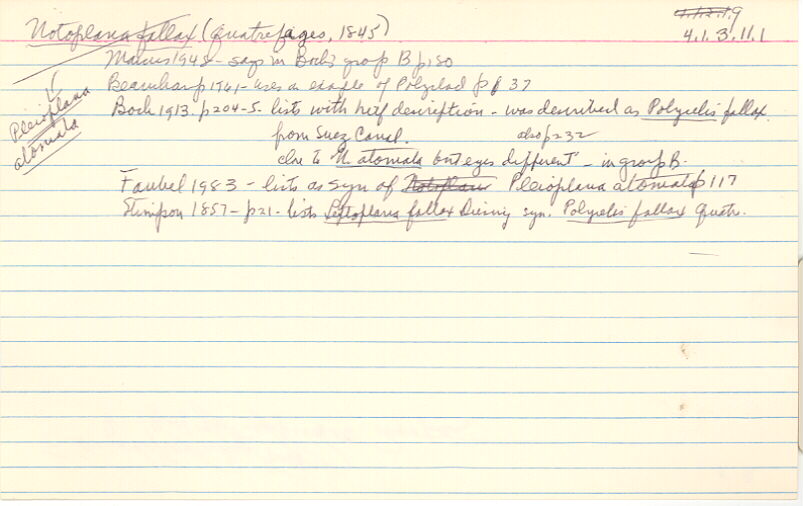 Notoplana fallax (Quatrefages, 1845)
4.1.12.1.9
4.1.3.11.1
Marcus 1948 - says in Bock's group B p 180
Pleioplana atomata
Beauchamp 1961 - uses as example of Polyclad p 37
Bock 1913. p204-5. lists with brief description - was described as Polycelis fallax.
from Suez Canal. also p232
close to N atomata but eyes different - in group B.
Faubel 1983 - lists as syn of Notoplana Pleioplana atomata p 117
Stimpson 1857 - p21 - lists Leptoplana fallax Diesing syn. Polycelis fallax Quatr.